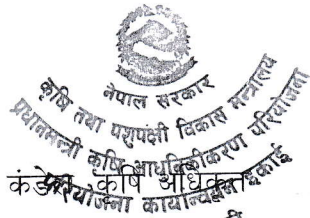 नेपाल सरकार
कृषि तथा पशुपंक्षी विकास मन्त्रालय
प्रधानमन्त्री कृषि आधुनिकीकरण परियोजना
परियोजना कार्यान्वयन इकाई
कृषि अधिकृत